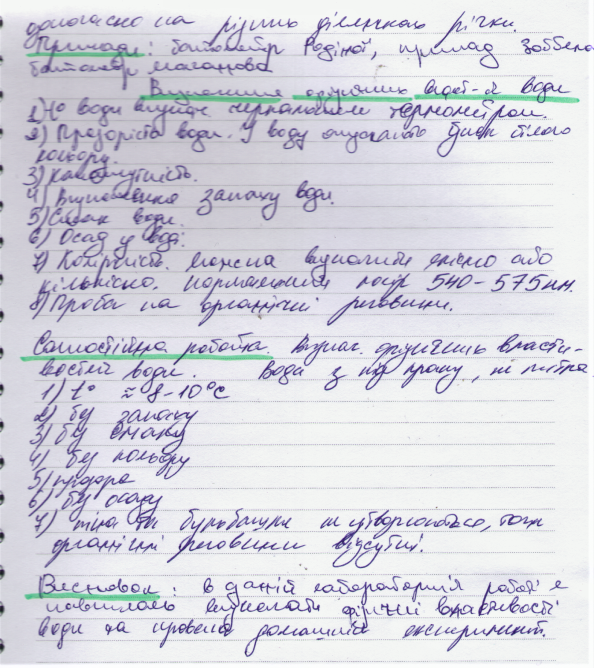 одночасно на різних ділянках річки.
Прилади: батометр Родіної, прилад Зоббела
батометр Маганова
Визначення фізичних власт-й води
1) t° води визнач. черпальним термометром.
2) Прозорість води. У воду опускають диск білого
кольору.
3) Каламутність.
4) Визначення запаху води.
5) Смак води.
6) Осад у воді.
7) Колірність. Можна визначити якісно або
кількісно. 540-575 нм.
8) Проба на органічні речовини.
Самостійна робота. Визнач. фізичних власти-
востей води. Вода з під крану, ні літра
1) t° ≈ 8-10°С
2) без запаху
3) без смаку
4) без кольору
5) прозора
6) без осаду
7) піна та бульбашки не утворюються, тому
органічні речовини відсутні.
Висновок: в даній лабораторній роботі я
навчилась визначати фізичні властивості
води та провела домашній експеримент.